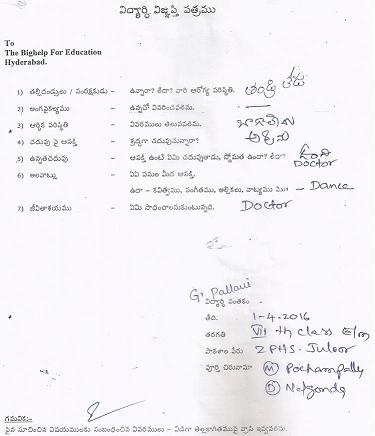 విద్యార్థి విజ్ఞప్తి పత్రము
To
The Bighelp For Education
Hyderabad.
1) తల్లిదండ్రులు / సంరక్షకుడు - ఉన్నారా? లేదా? వారి ఆరోగ్య పరిస్థితి. తండ్రి లేడు
2) అంగవైకల్యము - ఉన్నచో వివరించవలెను.
3) ఆర్థిక పరిస్థితి - వివరములు తెలుపవలెను. బాగాలేదు
4) చదువు పై ఆసక్తి - శ్రద్ధగా చదువుచున్నారా?
5) ఉన్నతచదువు - ఆసక్తి ఉంటే ఏమి చదువుతాడు, స్తోమత ఉందా? లేదా? ఉంది
Doctor
6) అలవాట్లు - ఏఏ పనుల మీద ఆసక్తి.
ఉదా - కవిత్వము, సంగీతము, అల్లికలు, నాట్యము మొ॥ - Dance
7) జీవితాశయము - ఏమి సాధించాలనుకుంటున్నది. Doctor
G. Pallavi
విద్యార్థి సంతకం
తేది. 1-4-2016
తరగతి VII th class E/m
పాఠశాల పేరు ZPHS. Juloor
పూర్తి చిరునామా (M) Pochampally
(D) Nalgonda
గమనిక:-
పైన సూచించిన విషయములకు సంబంధించిన వివరములు - విడిగా తెల్లకాగితముపై వ్రాసి ఇవ్వవలెను.